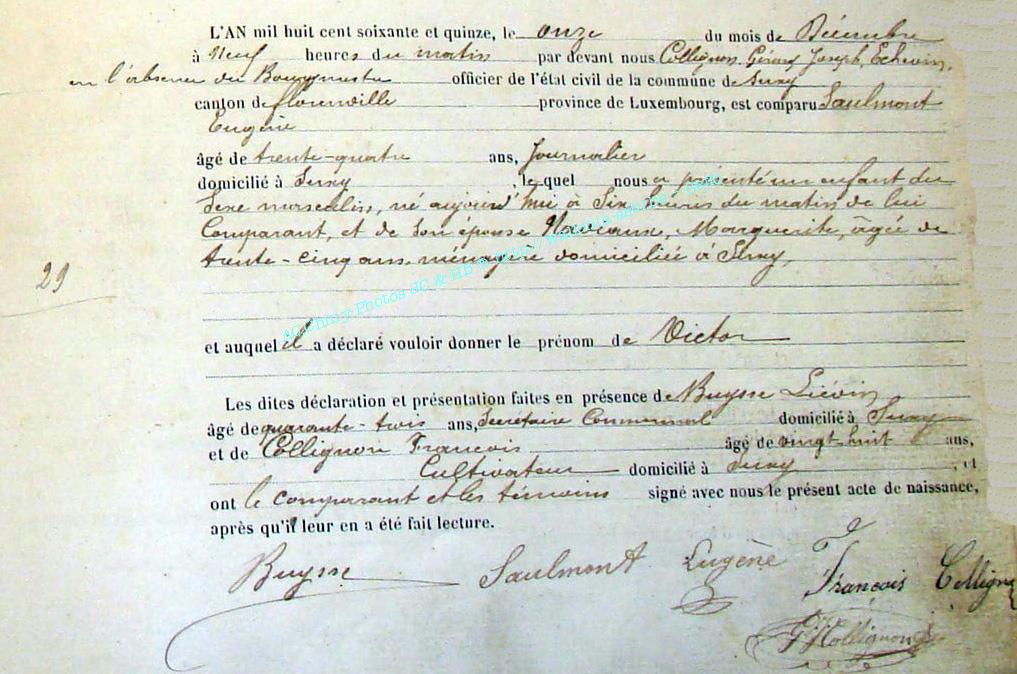 L'AN mil huit cent soixante et quinze, le onze du mois de Décembre
à Neuf heures du matin par devant nous Collignon Gérard Joseph, Echevin,
en l'absence du Bourgmestre officier de l'état civil de la commune de Suxy
canton de florenville province de Luxembourg, est comparu Saulmont
Eugène
âgé de trente-quatre ans, Journalier
domicilié à Suxy , lequel nous a présenté un enfant du
Sexe masculin, né aujourd'hui à Six heures du matin de lui
Comparant, et de son épouse Naviaux, Marguerite, âgée de
trente-cinq ans ménagère domiciliée à Suxy,
29
et auquel il a déclaré vouloir donner le prénom de Victor
Les dites déclaration et présentation faites en présence de Buysse Liévin
âgé de quarante-trois ans, Secrétaire Communal domicilié à Suxy
et de Collignon Francois âgé de vingt huit ans,
Cultivateur domicilié à Suxy , et
ont le comparant et les témoins signé avec nous le présent acte de naissance,
après qu'il leur en a été fait lecture.
Buysse Saulmont Eugène François Collignon
G J Collignon